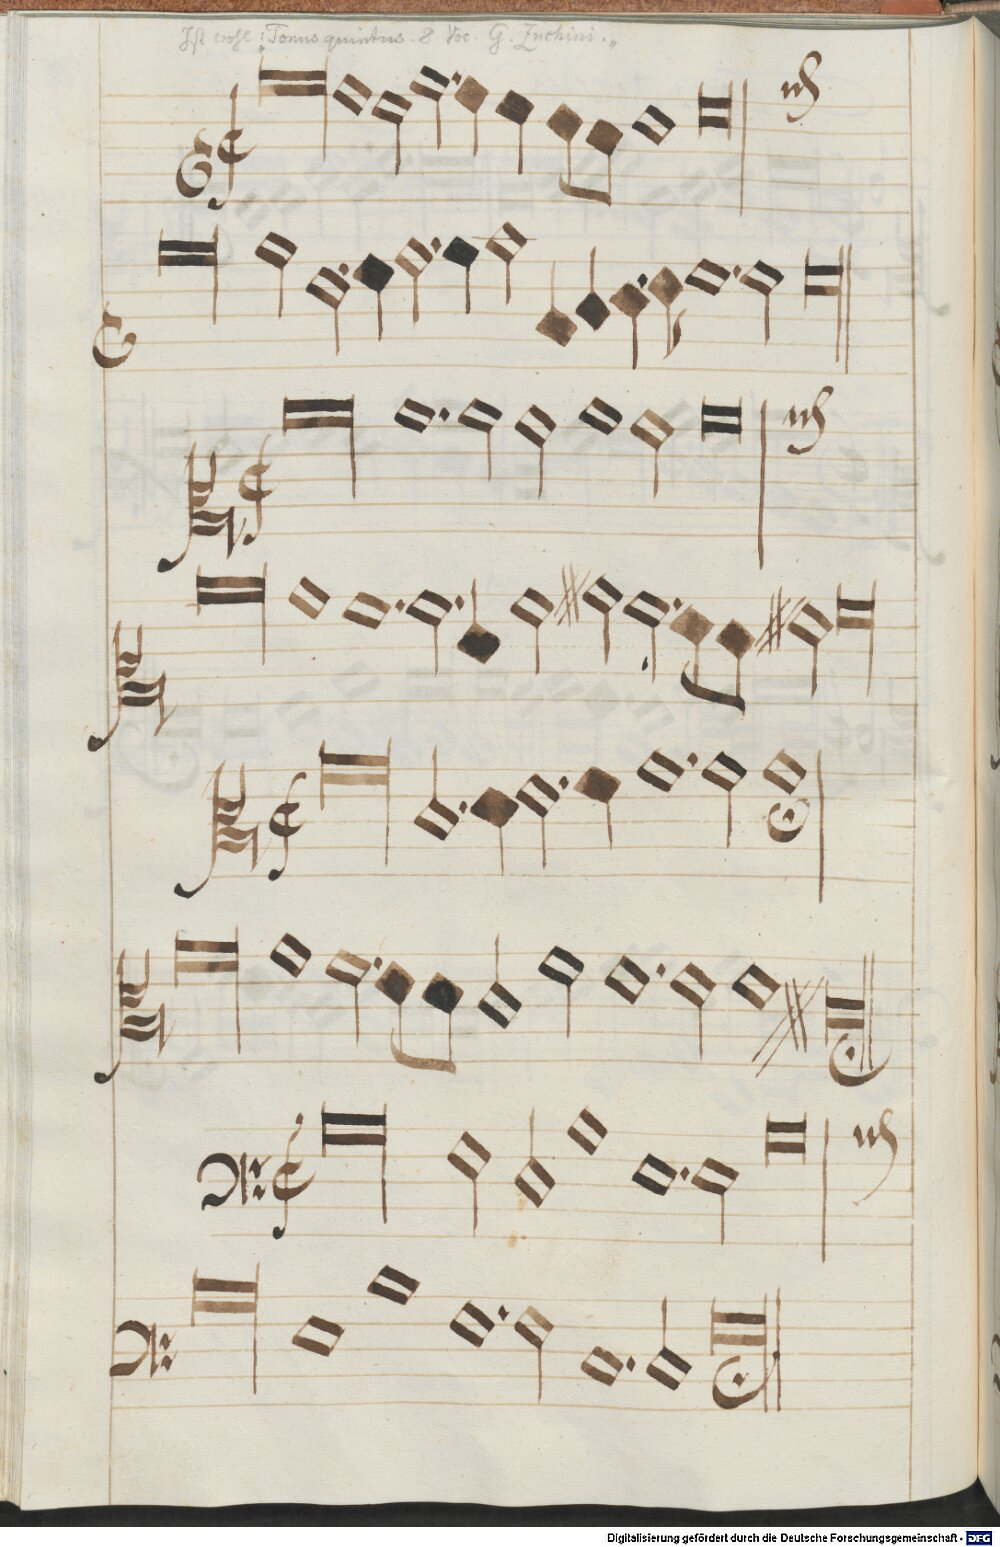 Ist wohl: "Tonus quintus. 8 Voc. G. Zuchini."
Digitalisierung gefördert durch die Deutsche Forschungsgemeinschaft - DFG